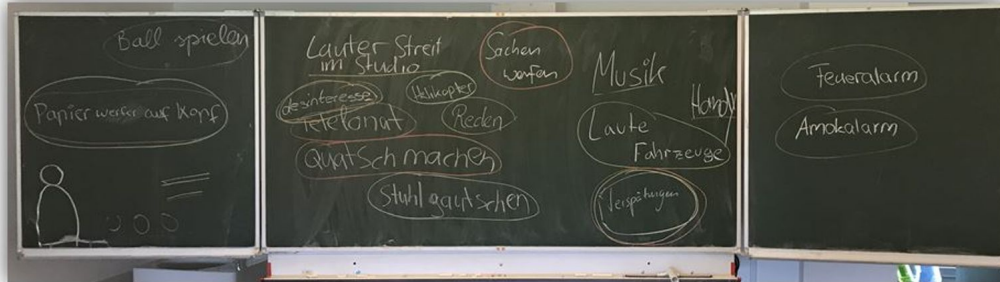 Ball spielen
Papier werfer auf Kopf
Lauter Streit
im Studio
Sachen
werfen
desinteresse
Helikopter
Telefonat
Reden
Quatsch machen
Stuhl gautschen
Musik
Handy
Laute
Fahrzeuge
Verspätungen
Feueralarm
Amokalarm